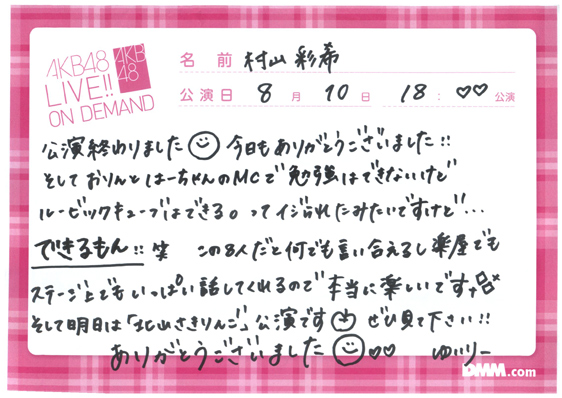 AKB48
LIVE!!
ON DEMAND
AKB
48
名前 村山彩希
公演日 8月10日 18:♡♡公演
公演終わりました☺今日もありがとうございました!!
そしておりんとはーちゃんのMCで勉強はできないけど
ルービックキューブはできる。ってイジられたみたいですけど…
できるもん!!笑 この8人だと何でも言い合えるし楽屋でも
ステージ上でもいっぱい話してくれるので本当に楽しいです
そして明日は「北山さきりんご」公演です ぜひ見て下さい!!
ありがとうございました☺♡♡ ゆいりー
DMM.com